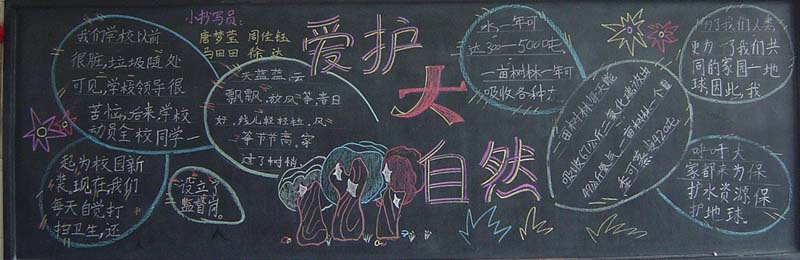 爱护
大
自然
小抄写员:
唐梦莹 周佳钰
马田田 徐达
我们学校以前
很脏,垃圾随处
可见,学校领导很
苦恼,后来学校
动员全校同学一
起为校园新
装,现在,我们
每天自觉打
扫卫生,还
设立了
监督岗。
天蓝蓝,云
飘飘,放风筝,春日
好,线儿轻轻拉,风
筝节节高,穿
过了树梢。
水,二年可
达300—500吨
一亩树林一年可
吸收各种
亩树林每天能
吸收67公斤二氧化碳,放出
49公斤氧气,一亩树林一个月
可蓄
为了我们人类
更为了我们共
同的家园—地
球,因此,我
呼吁大
家都来为保
护水资源,保
护地球